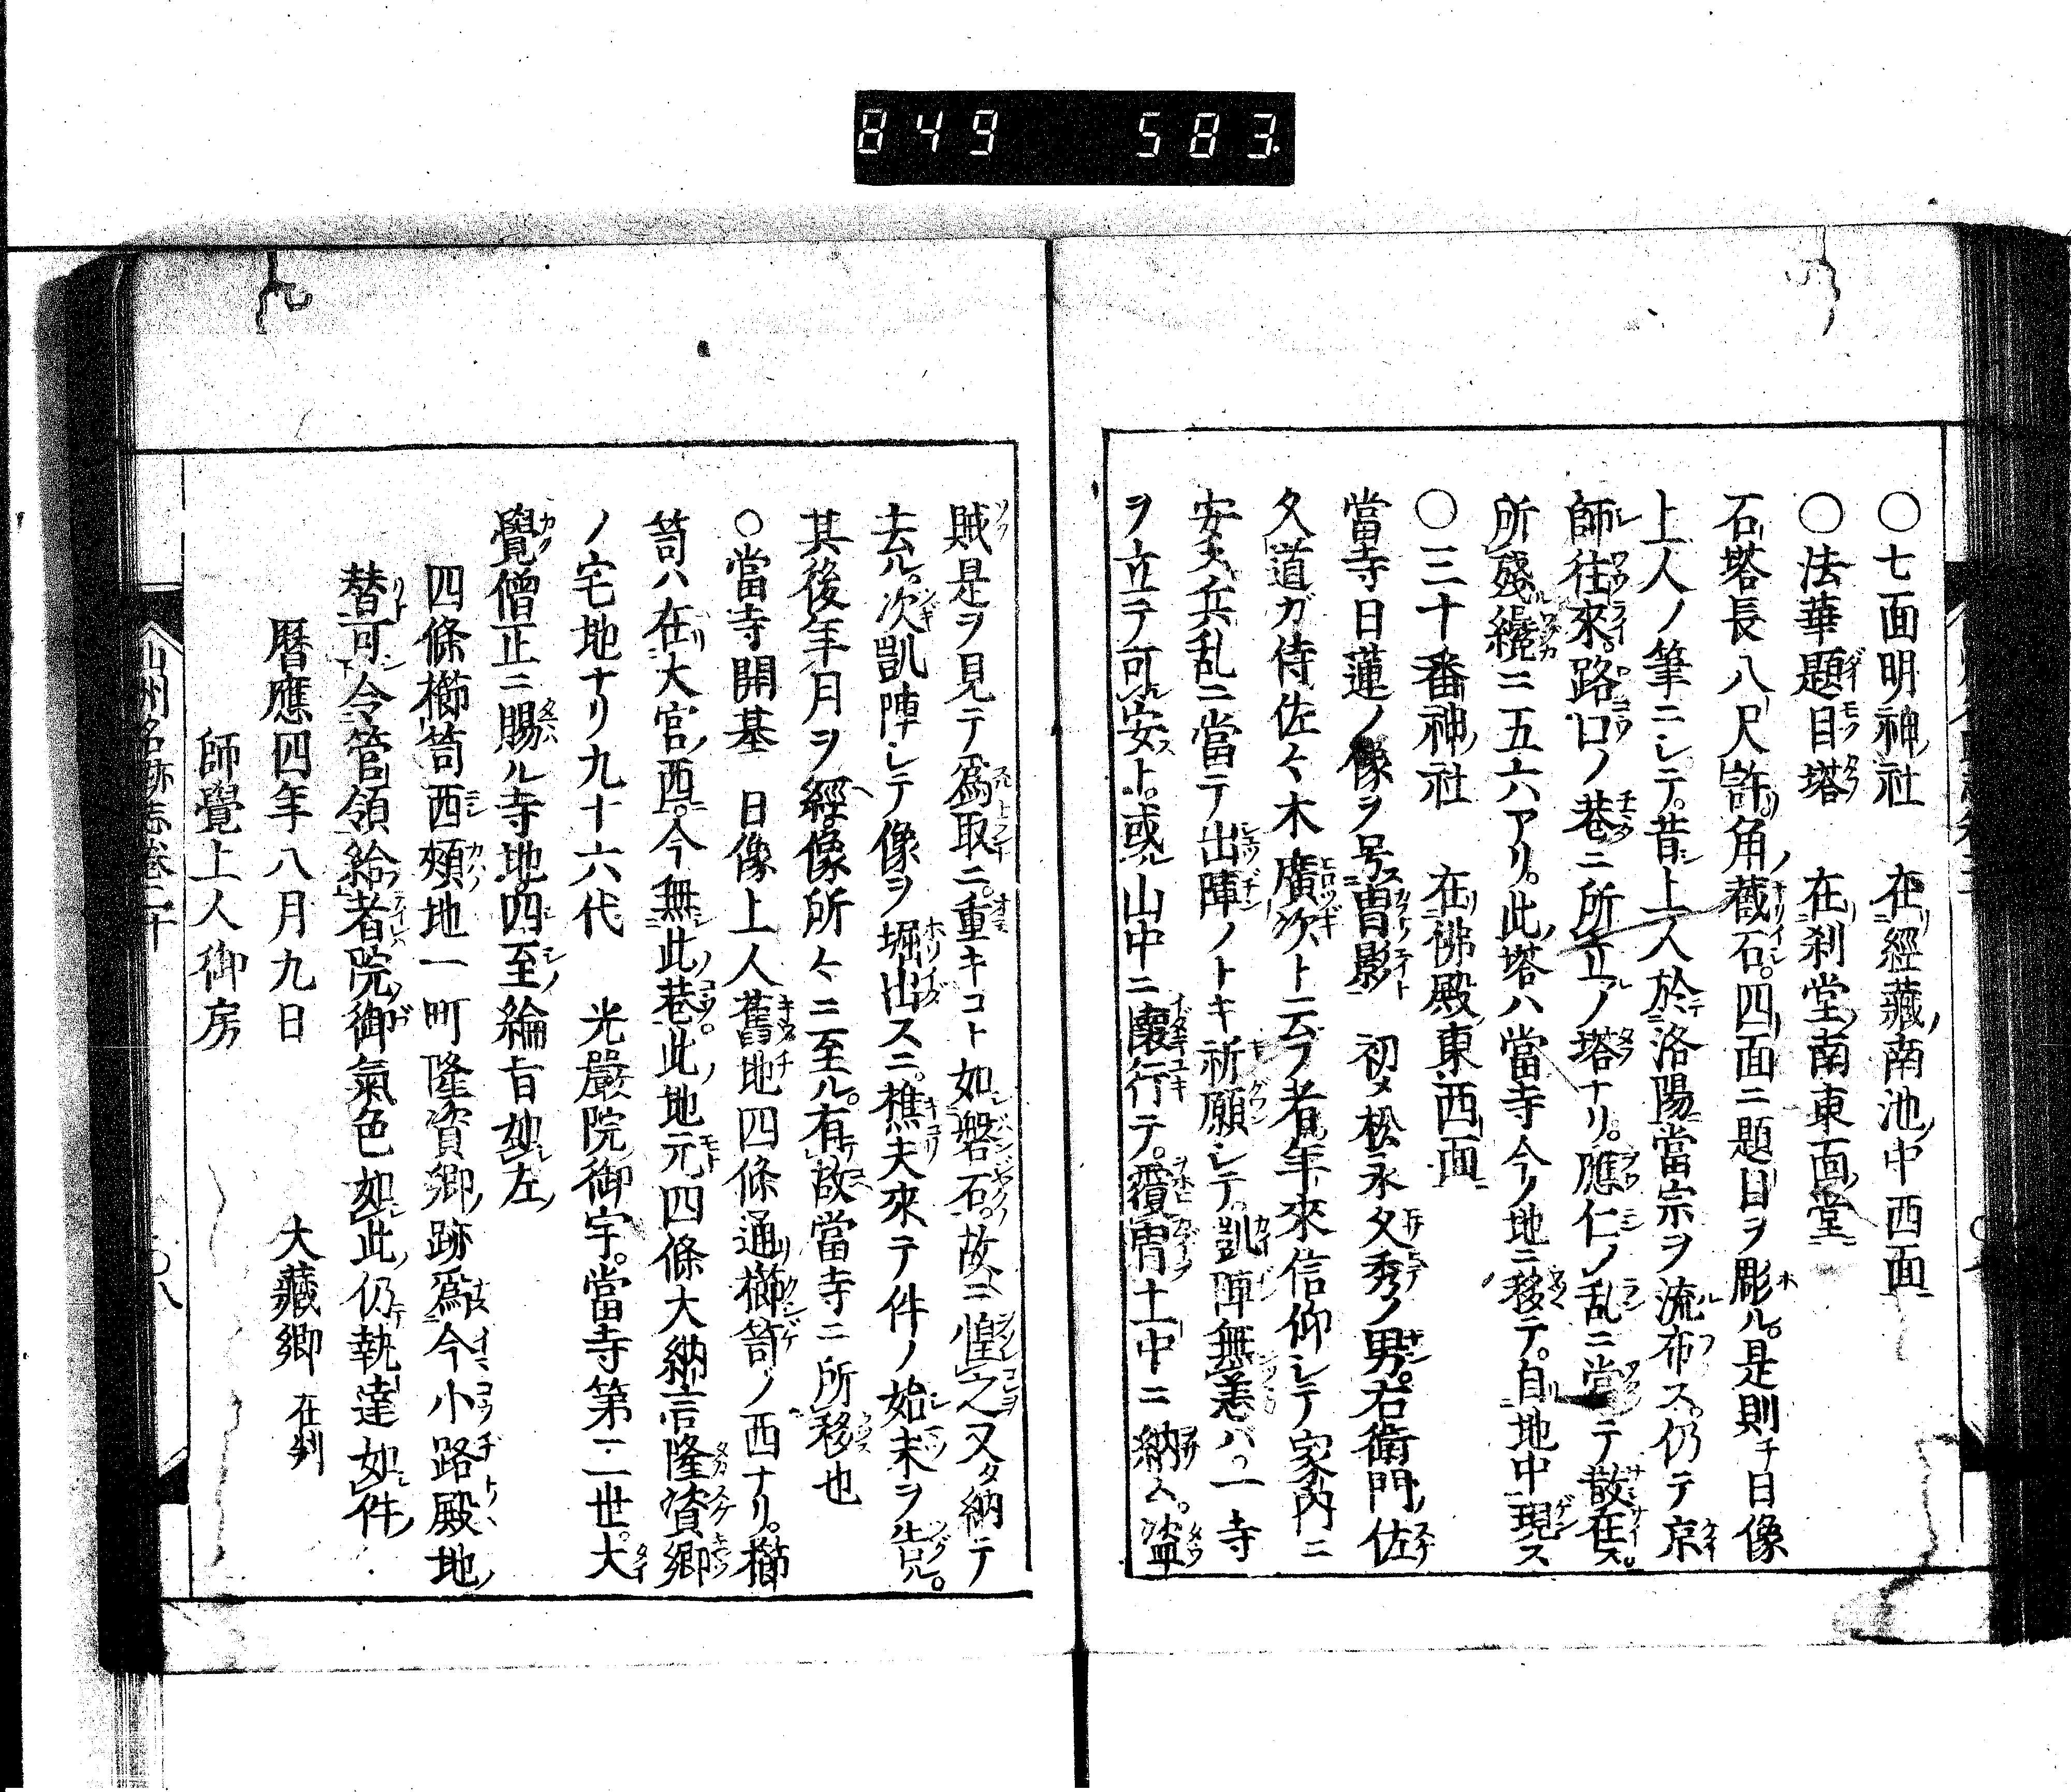 849 583.
○七面明神ノ社 在リ經藏ノ南池ノ中西面
○法華題目塔 在刹堂ノ南東面ノ堂
石塔長八尺許リ角ノ截石。四面ニ題目ヲ彫ル。是則チ日像
上人ノ筆ニシテ。昔シ上人於テ洛陽ニ當宗ヲ流布ス。仍テ京
師往來。路口ノ巷ニ所立ノ塔ナリ。應仁ノ乱ニ當テ散在ス。
所殘ル纔ニ五六アリ。此ノ塔ハ當寺今ノ地ニ移テ。自地中現ス
○三十番神ノ社 在佛殿ノ東西面
當寺日蓮ノ像ヲ号ス冑影ト 初メ松永久秀ノ男。右衛門ノ佐
久道ガ侍佐々木廣次ト云フ者。年來信仰シテ家内ニ
安ス兵乱ニ當テ出陣ノトキ祈願シテ。凱陣無恙バ。一寺
ヲ立テ可安スト。或ル山中ニ懷行テ。覆冑土中ニ納ム。盗
賊是ヲ見テ爲取ニ。重キコト如磐石。故ニ惶之又タ納テ
去ル。次凱陣シテ像ヲ堀出スニ。樵夫來テ件ノ始末ヲ告グ。
其後年月ヲ經ヘ像所々ニ至ル。有テ故當寺ニ所移也
○當寺開基 日像上人舊地四條通リ櫛笥ノ西ナリ。櫛
笥ハ在リ大宮ノ西ニ。今無シ此ノ巷。此ノ地元ト四條大納言隆資卿
ノ宅地ナリ九十六代 光嚴院御宇。當寺第二世。大
覺僧正ニ賜ル寺地ノ四至ノ綸旨如左ノ
四條櫛笥西頰地一町隆資卿ノ跡爲今小路殿地ノ
替ト可令管領給者院ノ御氣色如此ノ仍テ執達如件ノ
暦應四年八月九日 大藏卿 在判
師覺上人御房
山州名跡志卷二十